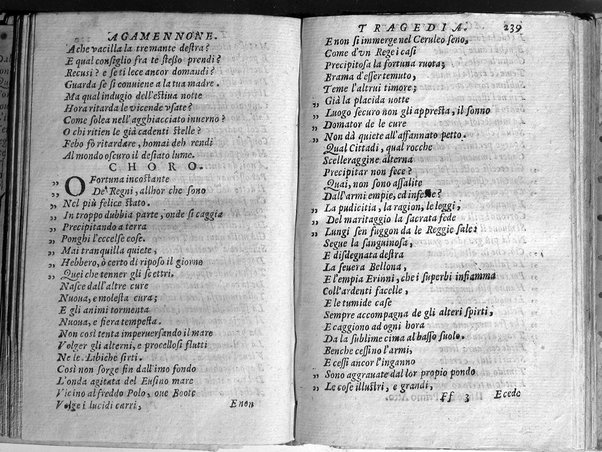 AGAMENNONE.
A che vacilla la tremante destra?
E qual consiglio fra te stesso prendi?
Recusi? e se ti lece ancor domandi?
Guarda se si conuiene a la tua madre.
Ma qual indugio dell'estiua notte
Hora ritarda le vicende vsate?
Come solea nell'agghiacciato inuerno?
O chi ritien le già cadenti stelle?
Febo sò ritardare, homai deh rendi
Al mondo oscuro il desiato lume.
CHORO.
„ O Fortuna incostante
„ De' Regni, allhor che sono
„ Nel più felice stato.
„ In troppo dubbia parte, onde si caggia
„ Precipitando a terra
„ Ponghi l'eccelse cose.
„ Mai tranquilla quiete,
„ Hebbero, ò certo di riposo il giorno
„ Quei che tenner gli scettri.
Nasce dall'altre cure
Nuoua, e molesta cura;
E gli animi tormenta
Nuoua, e fiera tempesta.
Non così tenta imperuersando il mare
Volger gli alterni, e procellosi flutti
Ne le Libiche sirti.
Così non sorge sin dall'imo fondo
L'onda agitata del Eusino mare
Vicino al freddo Polo, oue Boote
Volge i lucidi carri,
Enon
TRAGEDIA. 239
E non si immerge nel Ceruleo seno,
Come d'vn Rege i casi
Precipitosa la fortuna ruota;
Brama d'esser temuto,
Teme l'altrui timore;
„ Già la placida notte
„ Luogo securo non gli appresta, il sonno
„ Domator de le cure
„ Non dà quiete all'affannato petto.
Qual Cittadi, qual rocche
Sceleraggine alterna
Precipitar non fece?
Quai, non sono assalite
Dall'armi empie, ed infeste?
„ La pudicitia, la ragion, le leggi,
„ Del maritaggio la sacrata fede
„ Lungi sen fuggon da le Reggie sale:
Segue la sanguinosa,
E disdegnata destra
La seuera Bellona,
E l'empia Erinni, che i superbi infiamma
Coll'ardenti facelle,
E le tumide case
Sempre accompagna de gli alteri spirti,
E caggiono ad ogni hora
Da la sublime cima al basso suolo.
Benche cessino l'armi,
E cessi ancor l'inganno
„ Sono aggrauate dal lor propio pondo
„ Le cose illustri, e grandi,
Ff 3 Ecede